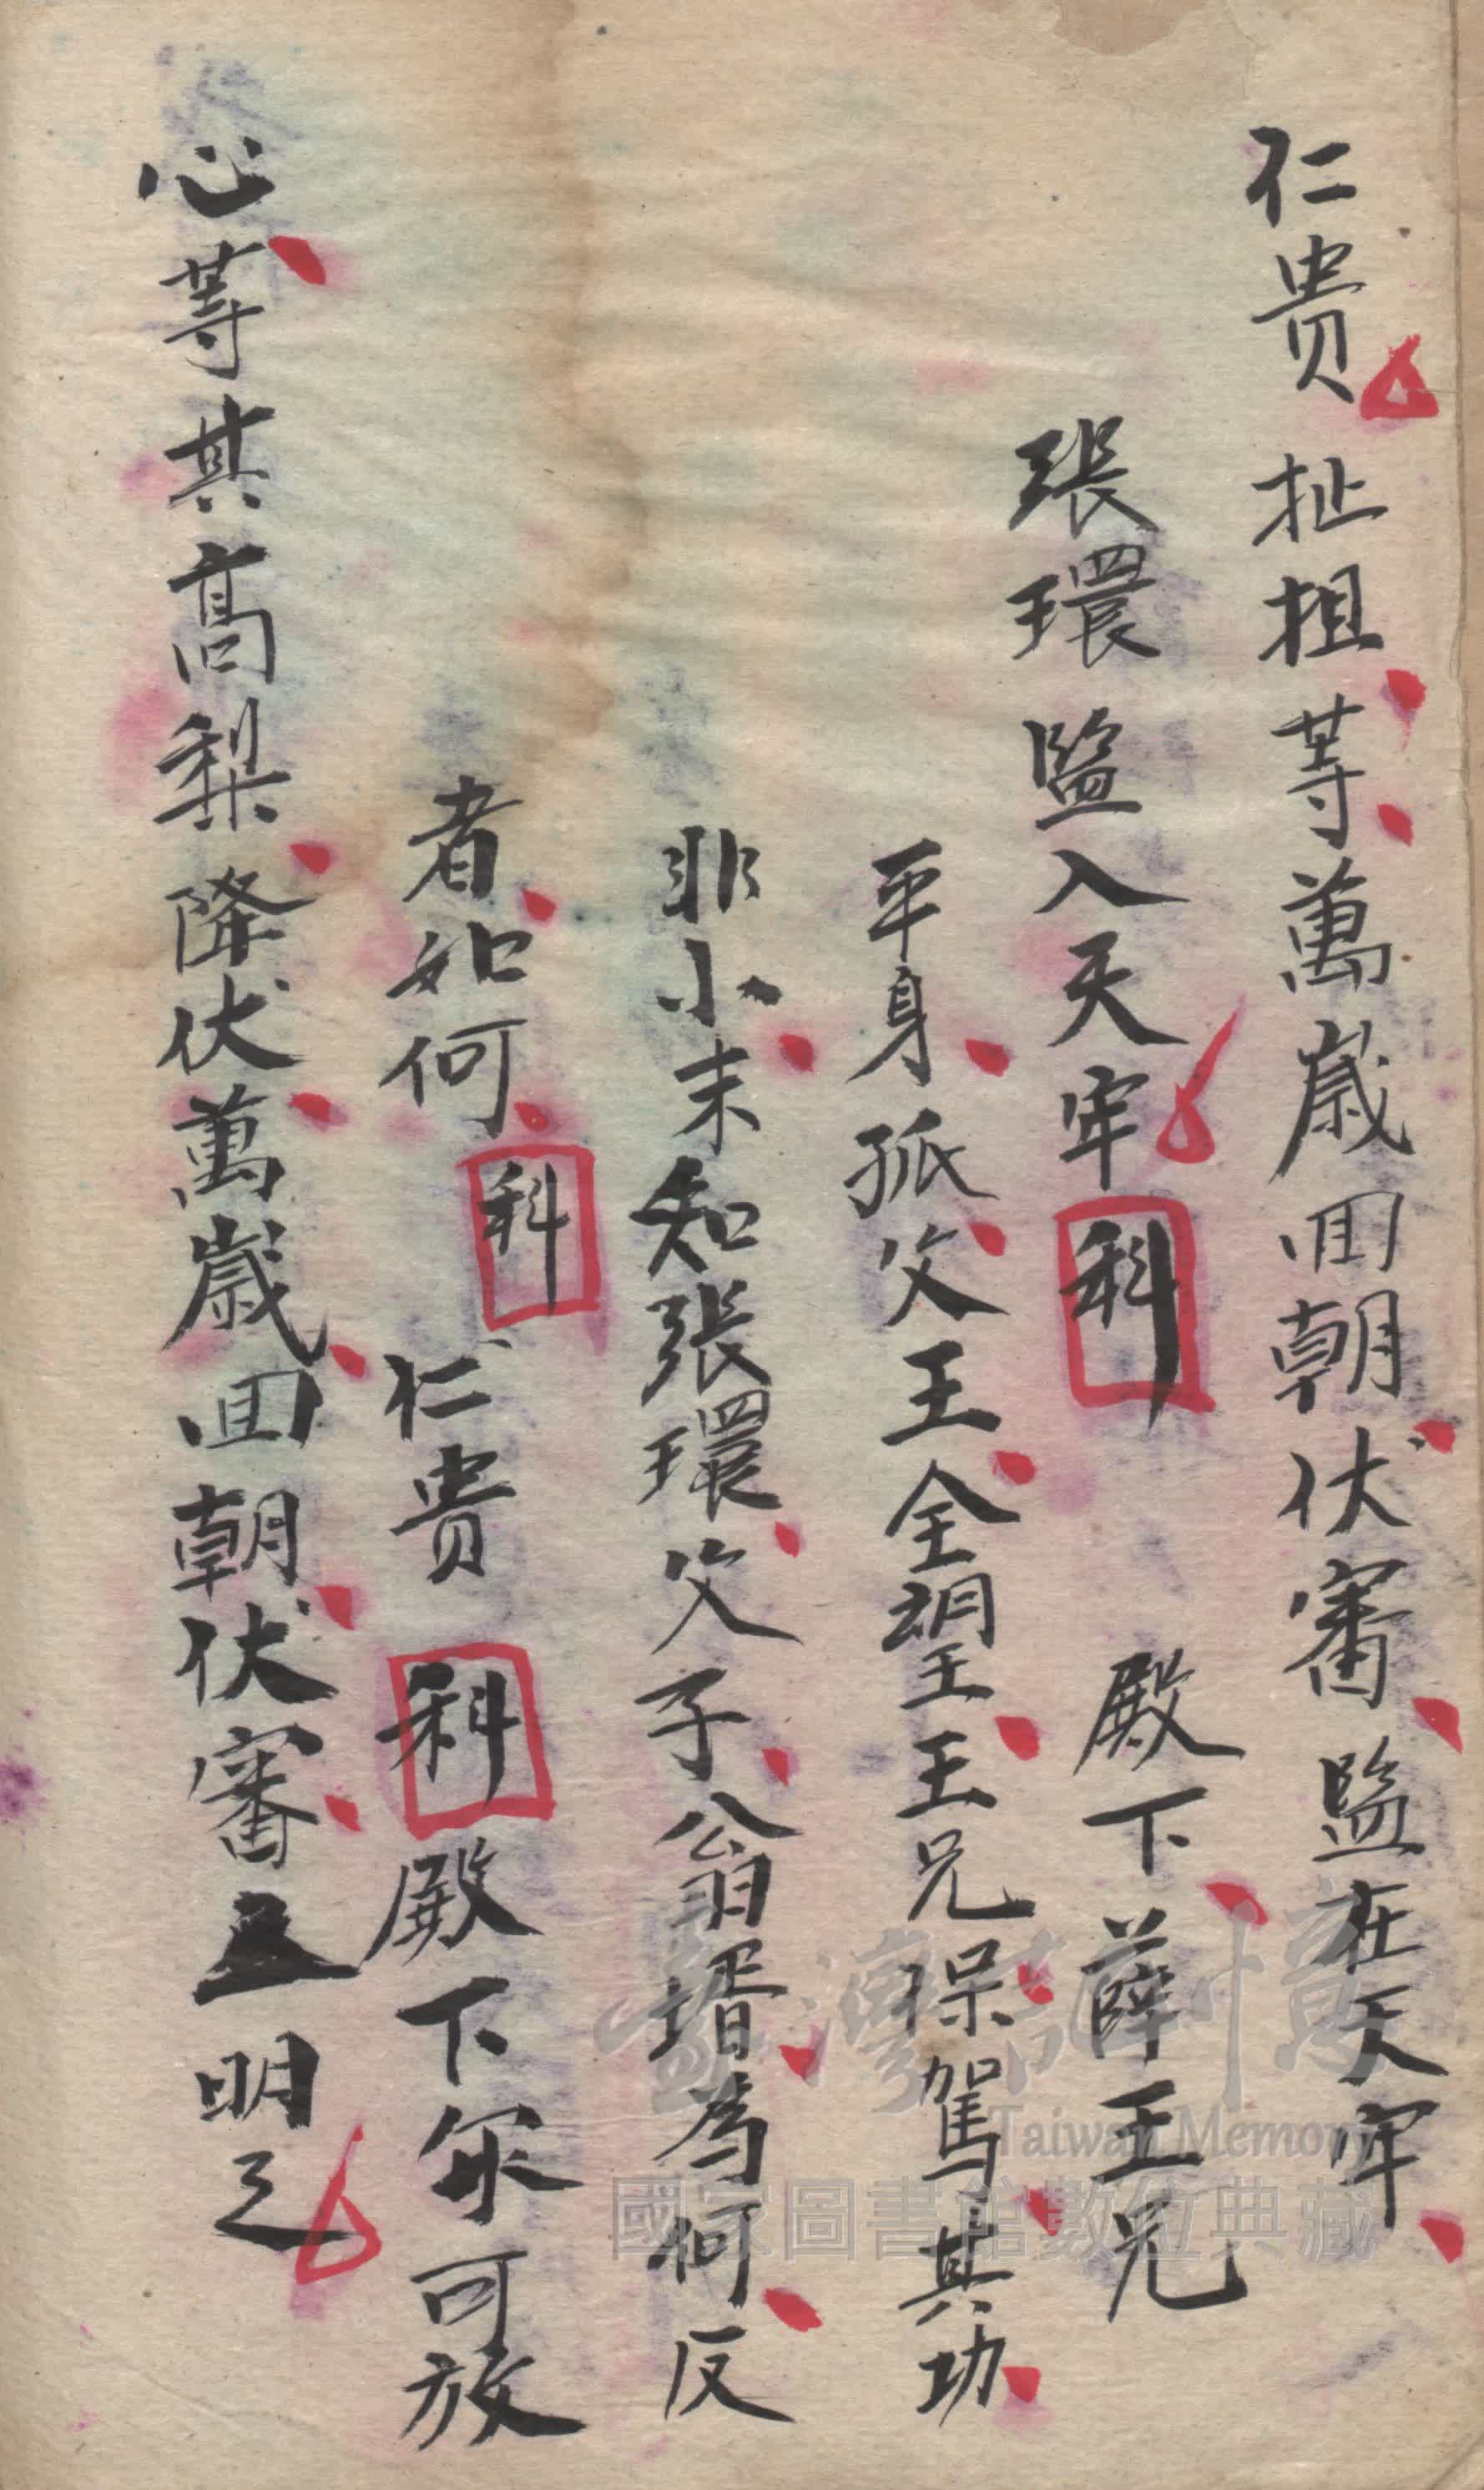 仁貴扯扭等萬歲回朝伏審監在天牢
張環監入天牢科殿下薛王兄
平身孤父王全望王兄保駕其功
非小末知張環父子翁壻為何反
者如何科仁貴科殿下永可放
心等其高梨降伏萬歲回朝伏審明之
臺灣記憶
Taiwan Memory
國家圖書館數位典藏